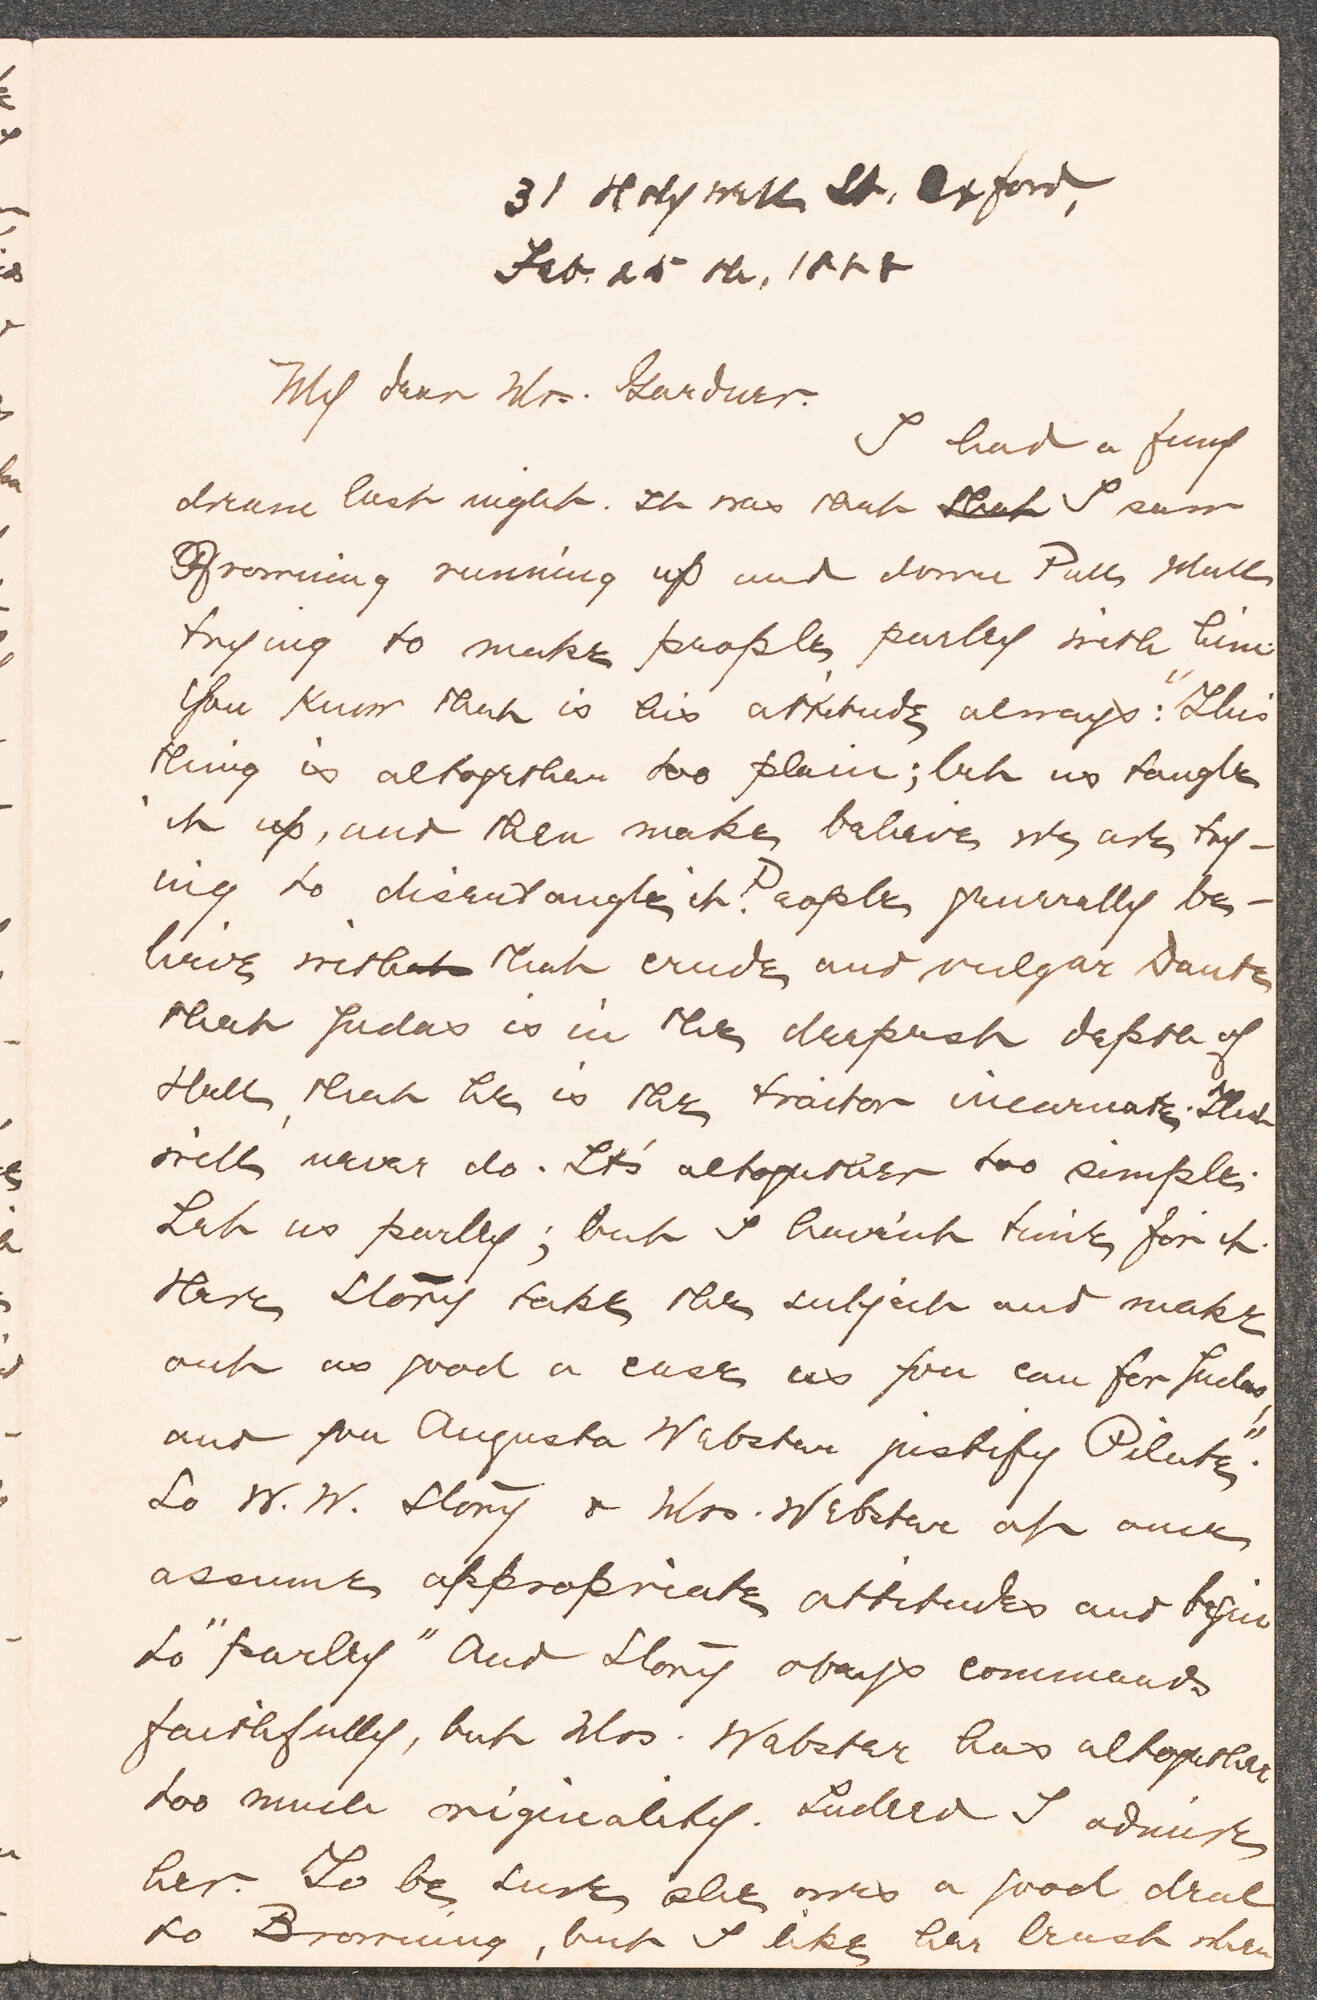 31 Holywell St. Oxford,
Feb. 25 th, 1888
My dear Mrs. Gardner.
I had a funy
dream last night. It was that that I saw
Browning running up and down Pall Mall
trying to make people parley with him
You know that is his attitude always: "This
thing is altogether too plain; let us tangle
it up, and then make believe we are try-
ing to disentangle it? People generally be-
lieve with that crude and vulgar Dante
that Judas is in the deepest depth of
Hell, that he is the traitor incarnate. That
will never do. It's altogether too simple.
Let us parley; but I have'nt time for it.
Here Story take the subject and make
out as good a case as you can for Judas,
and you Augusta Webster justify Pilate".
So W. W. Story & Mrs. Webster at once
assume appropriate attitudes and begin
to "parley" And Story obeys commands
faithfully, but Mrs. Webster has altogether
too much originality. Indeed I admire
her. To be sure she owes a good deal
to Browning, but I like her best when